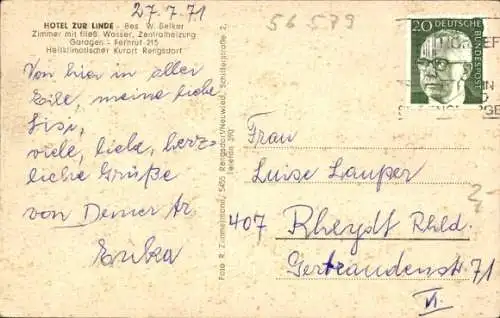 27.7.71
56 579
HOTEL ZUR LINDE - Bes. W. Belker
Zimmer mit fließ. Wasser, Zentralheizung
Garagen - Fernruf 215
Heilklimatischer Kurort Rengsdorf
20
DEUTSCHE
BUNDESPOST
Von hier in aller
Eile, meine liebe
Lisi,
viele, liebe, herz-
liche Grüße
von Deiner
Erika
Foto R. Zimmermann, 5455 Rengsdorf/Neuwied, Schillerstraße 2, Telefon 390
Frau
Luise Lauper
407 Rheydt Rhld.
Gertraudenstr. 71
VI.